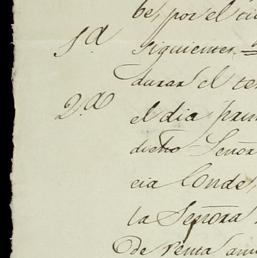 be, por el ci
1ª siguientes.
durar el te
2ª el dia prim
dicho Señor
cia Conde,
la Señora
de renta anu